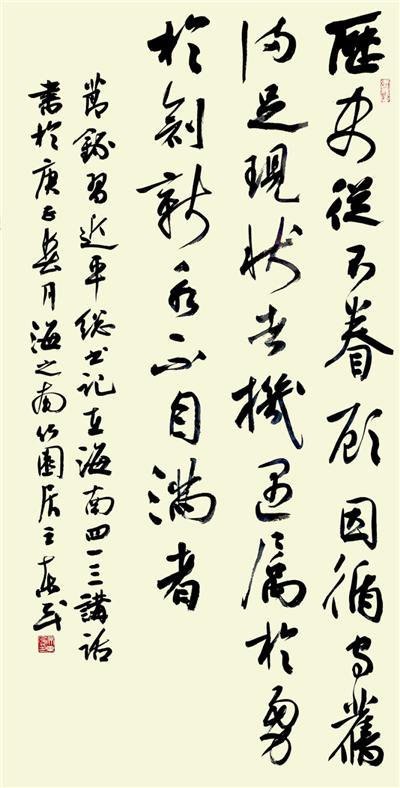 歷史從不眷顧因循守舊
滿足現狀者機遇屬於勇
於創新永不自滿者
節錄習近平總書記在海南四一三講話
書於庚子月海之南園居